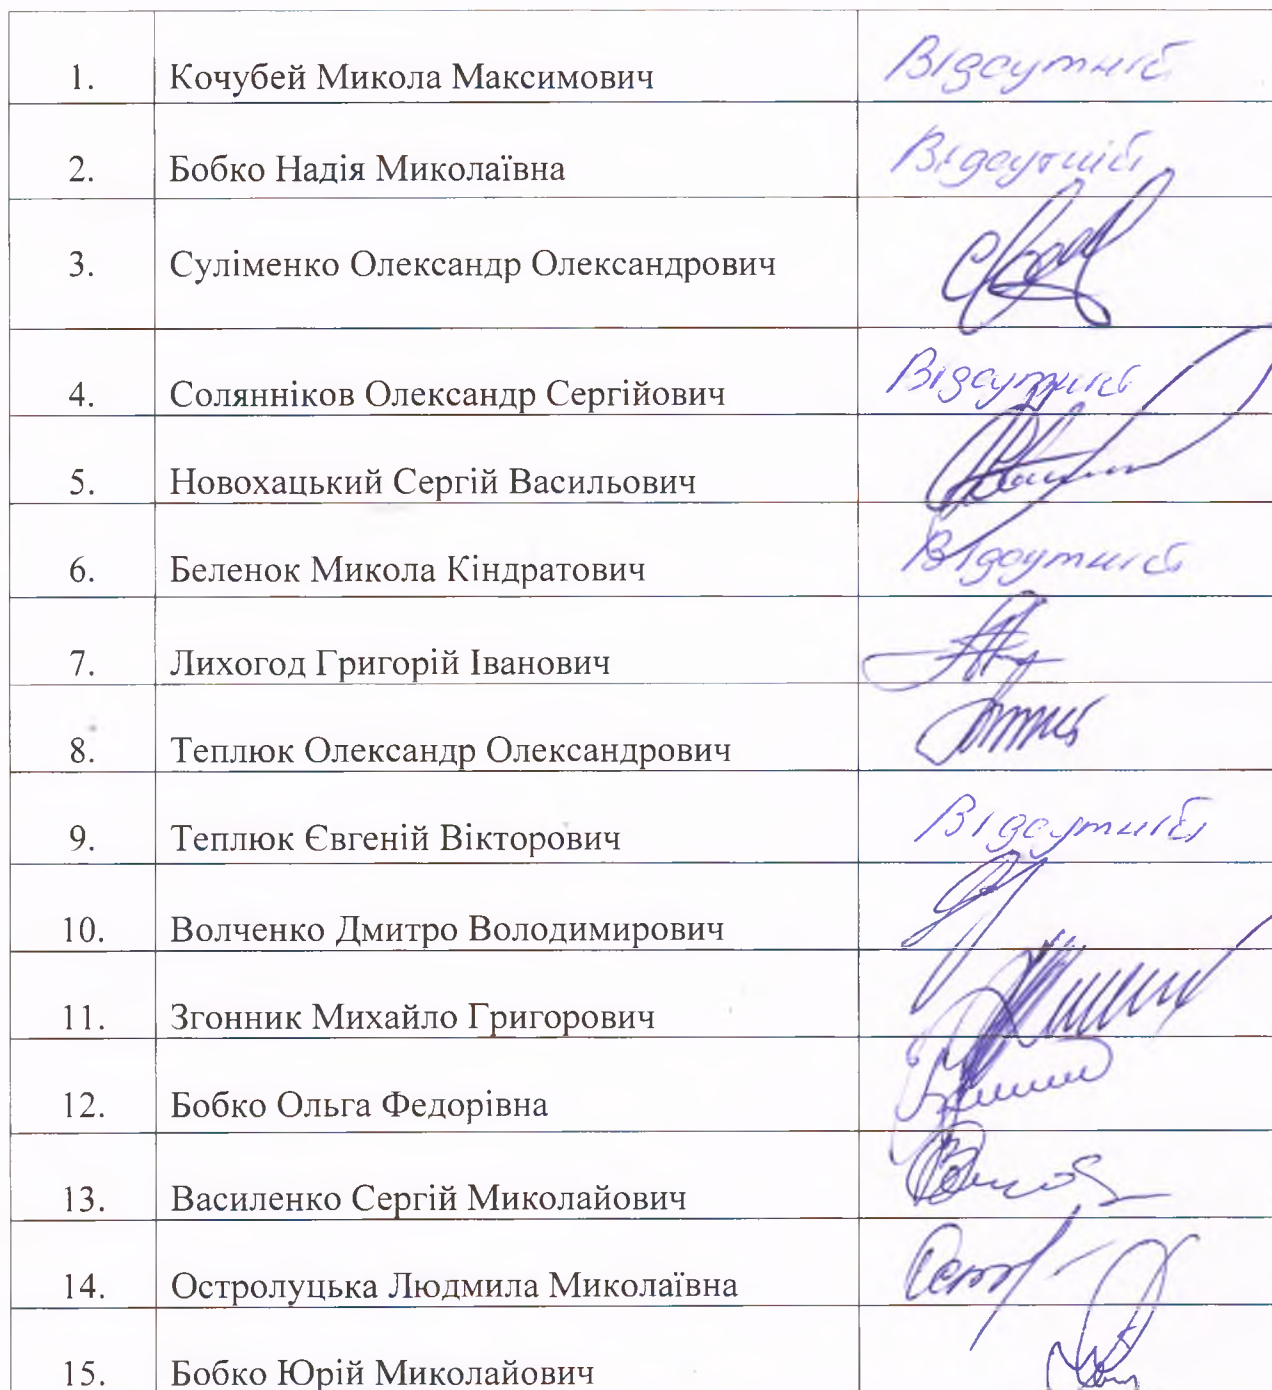 1. Кочубей Микола Максимович Відсутній
2. Бобко Надія Миколаївна Відсутній
3. Суліменко Олександр Олександрович
4. Солянніков Олександр Сергійович Відсутній
5. Новохацький Сергій Васильович
6. Беленок Микола Кіндратович Відсутній
7. Лихогод Григорій Іванович
8. Теплюк Олександр Олександрович
9. Теплюк Євгеній Вікторович Відсутній
10. Волченко Дмитро Володимирович
11. Згонник Михайло Григорович
12. Бобко Ольга Федорівна
13. Василенко Сергій Миколайович
14. Остролуцька Людмила Миколаївна
15. Бобко Юрій Миколайович